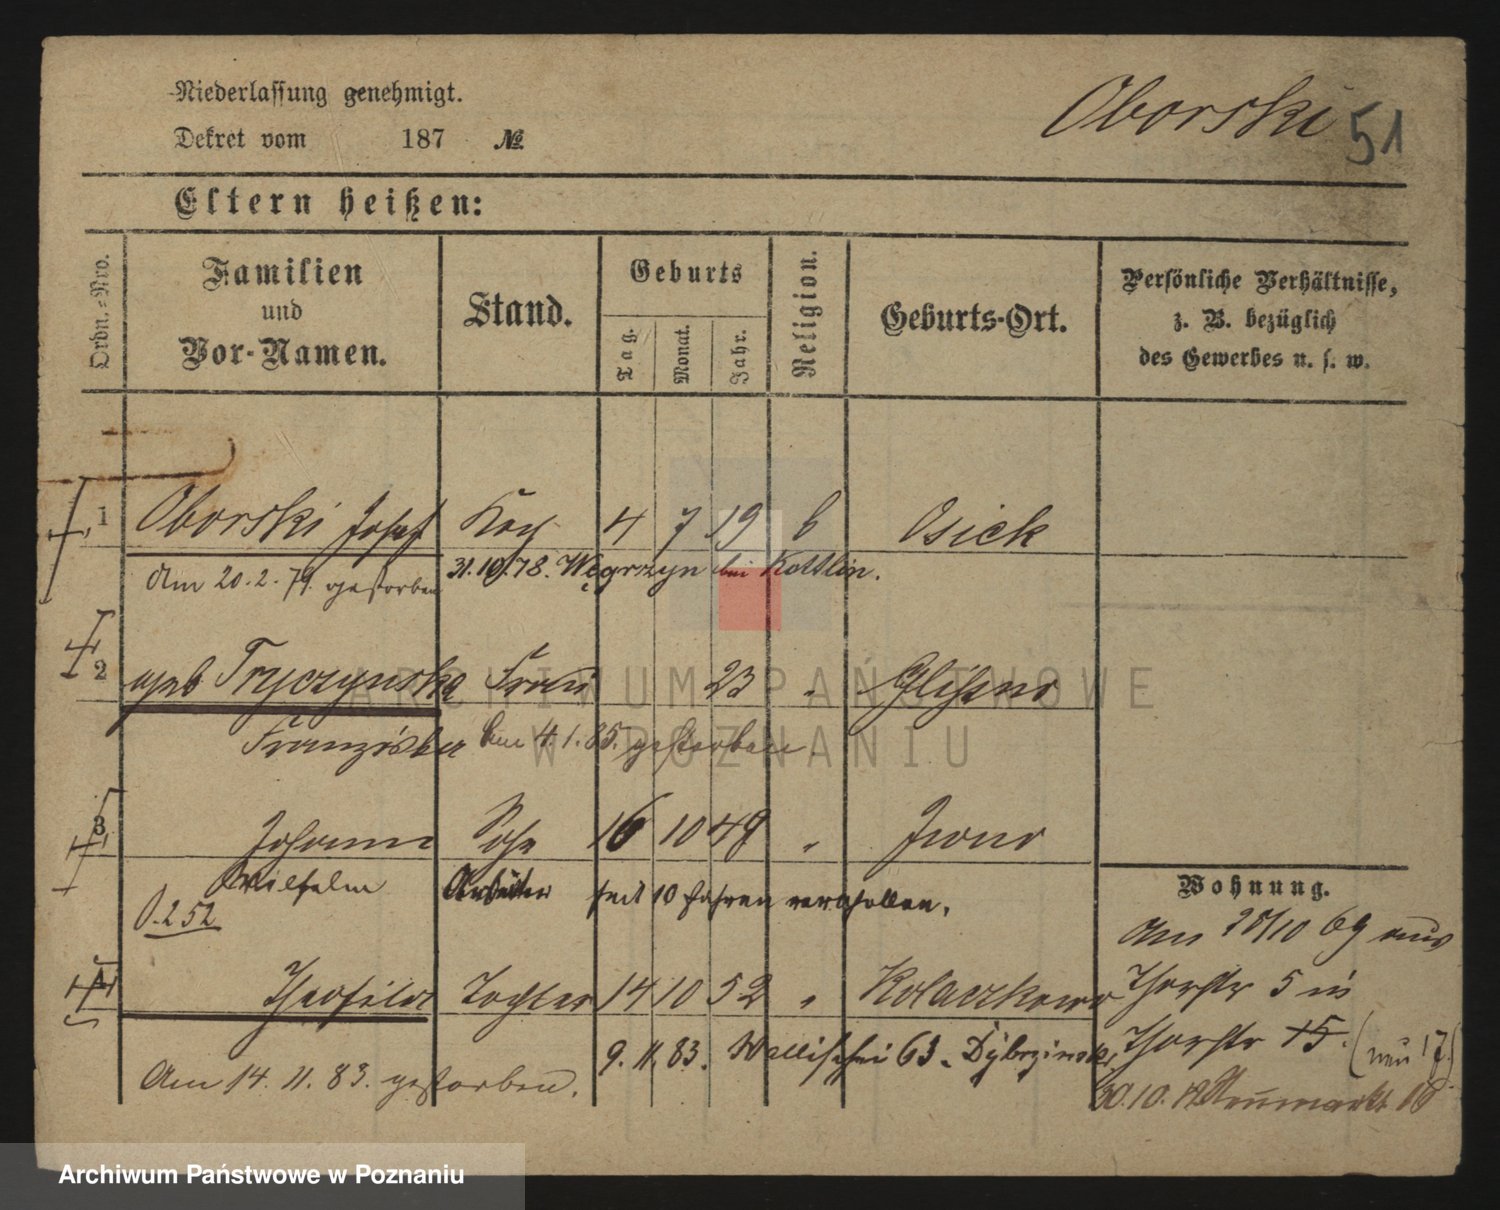 Niederlassung genehmigt.
Dekret vom 187 №
Oborski 51
Eltern heißen:
Ordn.-Nro.
Familien
und
Vor-Namen.
Stand.
Geburts
Tag. Monat. Jahr.
Religion.
Geburts-Ort.
Persönliche Verhältnisse,
z. B. bezüglich
des Gewerbes u. s. w.
1 Oborski Josef Koch 4 7 19 Osiek
Am 20.2.79. gestorben 31.10.78. Węgrzyn bei Kottlin.
2 geb Tryczynska Frau 23 "
Franziska Am 4.1.85. gestorben.
3 Johann Sohn 16 10 48 "
Wilhelm Arbeiter seit 10 Jahren verschollen.
252
4 Theofila Tochter 14 10 52 " Kolaczkowo
9.11.83. Wallischei 63.
Am 14.11.83. gestorben.
Wohnung.
Am 28/10 69 aus
Thorstr 5 in
Thorstr 15. (neu 17)
30.10. Neumarkt
ARCHIWUM PAŃSTWOWE
W POZNANIU
Archiwum Państwowe w Poznaniu